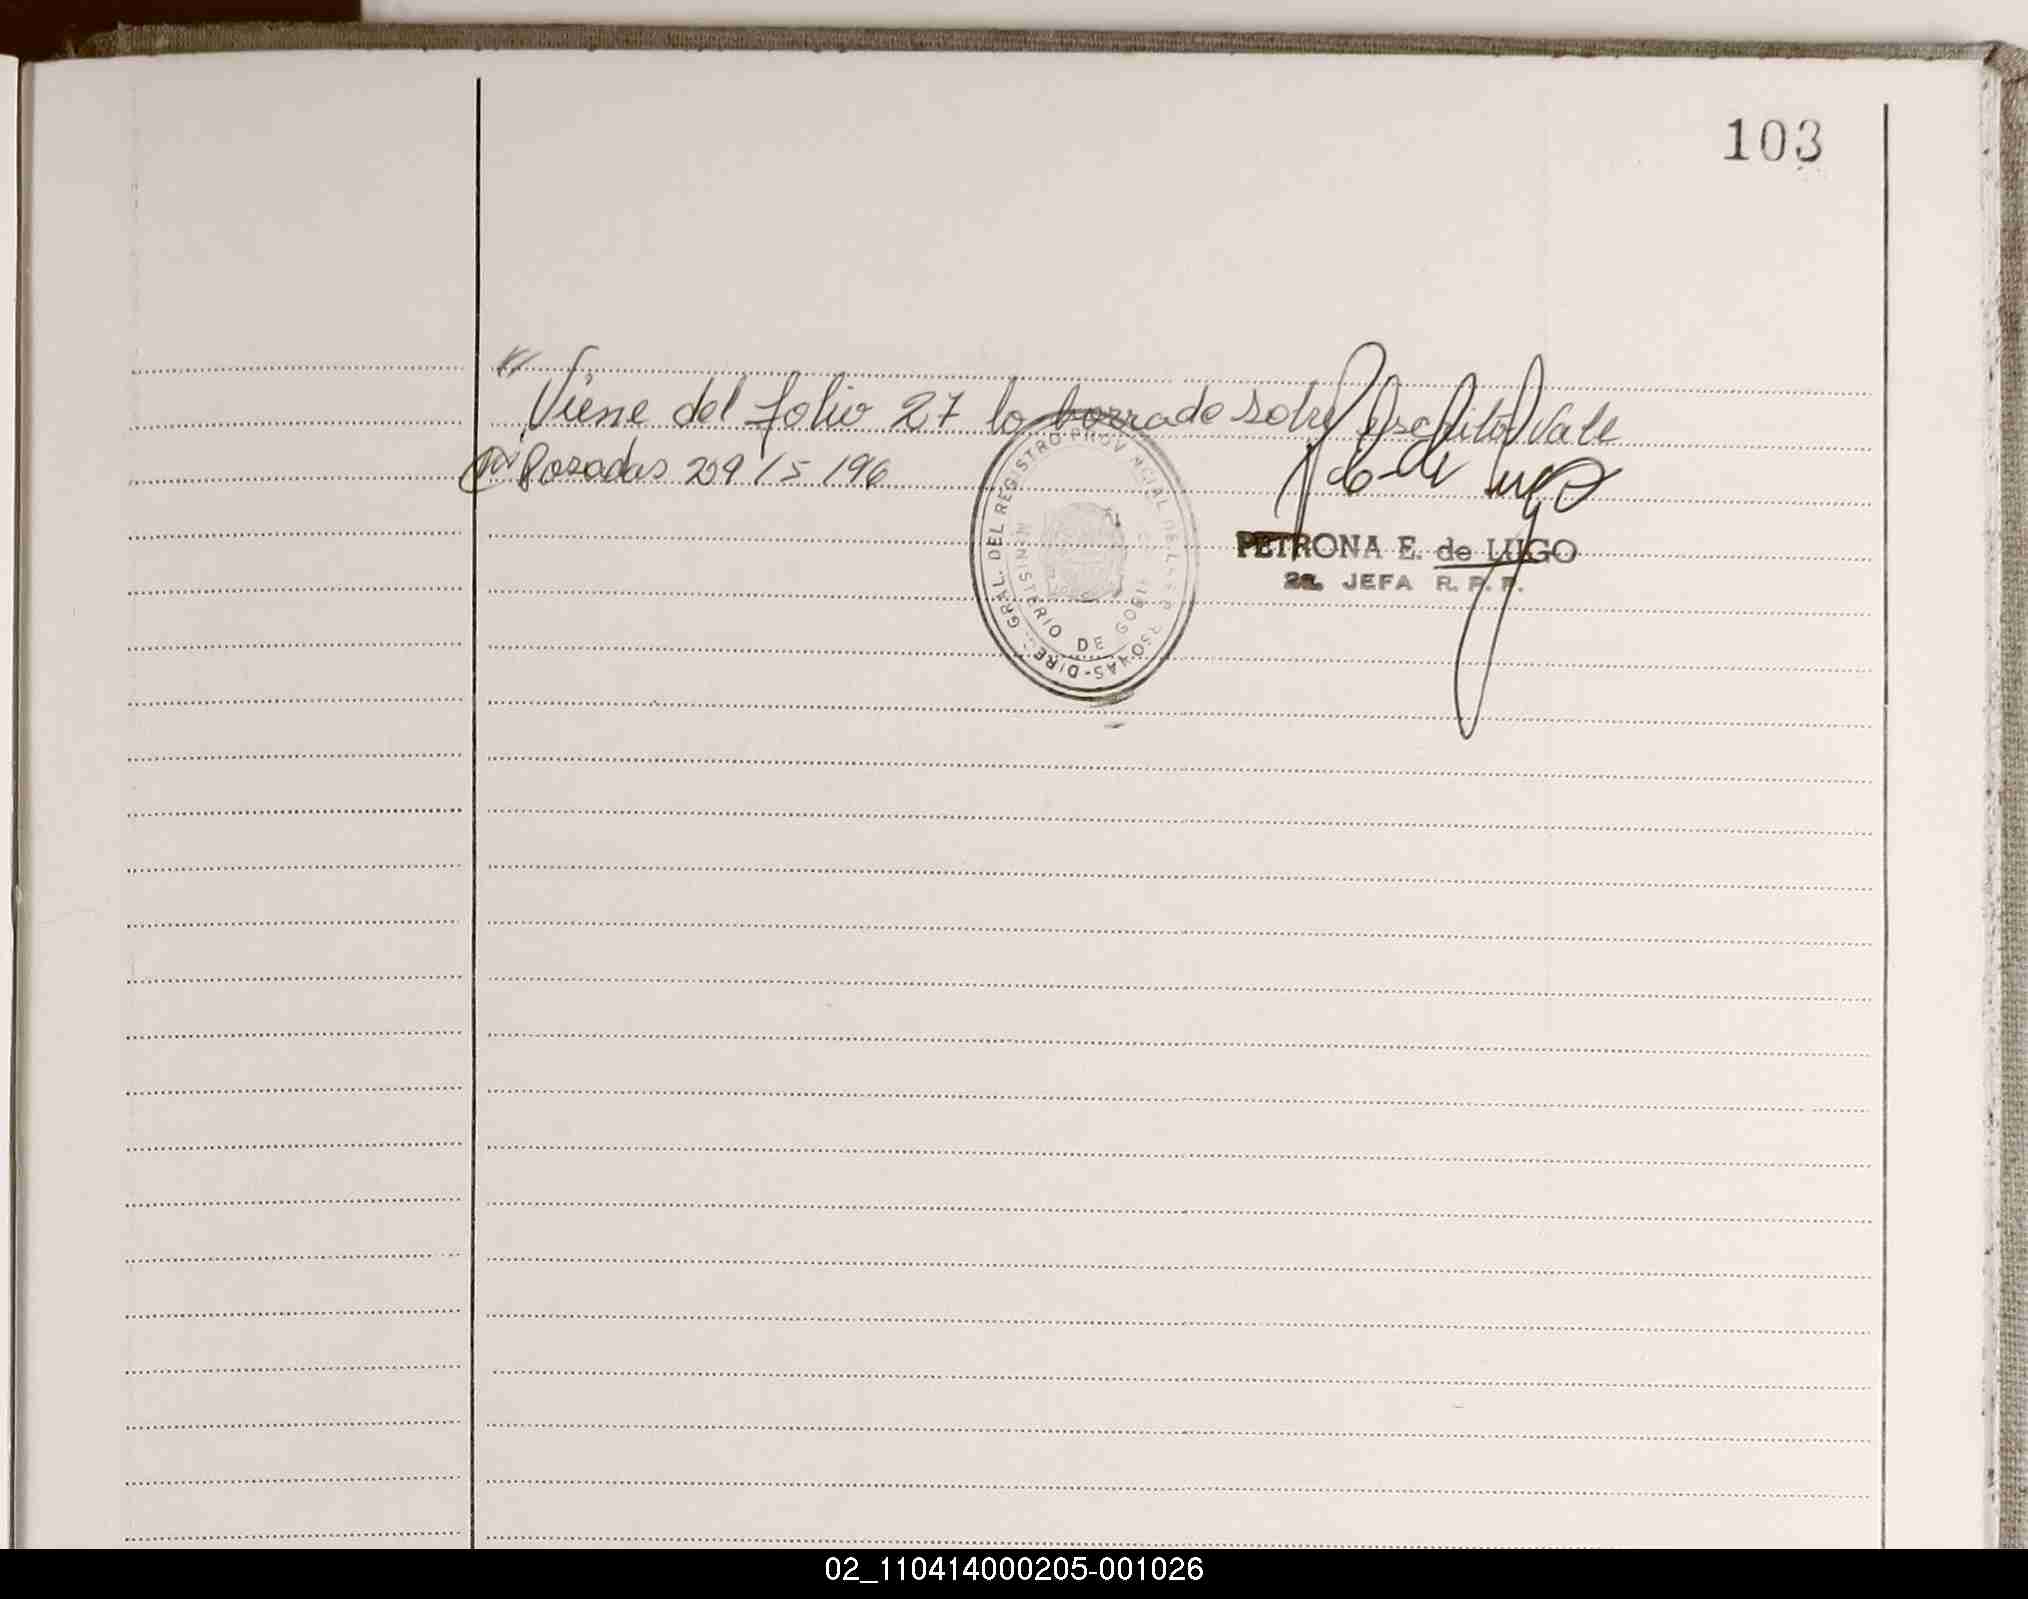 103
" Viene del folio 27 lo borrado sobre escrito vale
Posadas 209 / 5 / 96
DIREC. GRAL. DEL REGISTRO PROVINCIAL DE LAS PERSONAS-
MINISTERIO DE GOBIE
P. E. de Lugo
PETRONA E. de LUGO
2a. JEFA R. P. P.
02_110414000205-001026